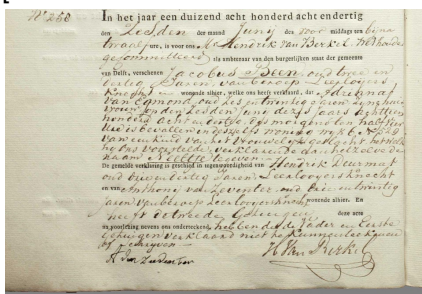 No 250
In het jaar een duizend acht honderd acht endertig
den Zesden der maand Juny des voor middags ten bijna
twaalf ure, is voor ons Mr Hendrik van Berkel, Wethouder
gecommitteerd als ambtenaar van den burgerlijken staat der gemeente
van Delft, verschenen Jacobus Been, oud twee en
dertig Jaren, van beroep Leerloyers
knecht wonende alhier, welke ons heeft verklaard, dat Adriana
van Egmond, oud zes en twintig Jaren zyne huis
vrouw, op den Zesden Juny dezes Jaars achttien
honderd acht en dertig, des morgens ten half
ure is bevallen in deszelfs woning wyk 6 No
van een kind van het vrouwelyke geslacht, hetwelk
hy ons voorstelde, verklarende aan hetzelve den
naam Neeltje te geven.
De gemelde verklaring is geschied in tegenwoordigheid van Hendrik Leurmat
oud dertig Jaren, Leerlooyersknecht
en van Anthony van Deventer, oud drie en twintig
Jaren van beroep Leerloyersknecht wonende alhier. En
heeft de tweede Getuigen deze acte
na voorlezing nevens ons onderteekend, hebbende de Vader en Eerste
Getuigen verklaard niet te kunnen teekenen
of schryven
H Van Berkel